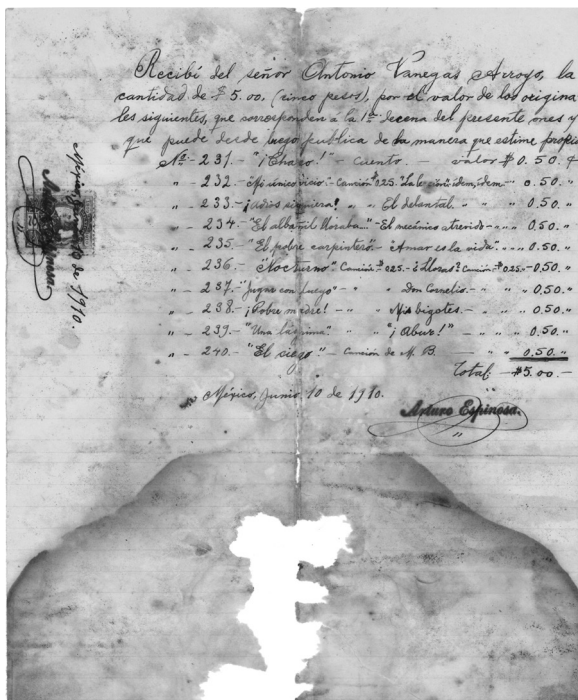 Recibí del señor Antonio Vanegas Arroyo, la
cantidad de $5.00. (cinco pesos), por el valor de los origina
les siguientes, que corresponden a la 1ª decena del presente mes y
que puede desde luego publica de la manera que estime propic
No. - 231. - "¡Chano!" - Cuento. - valor $ 0.50. ¢
" - 232. - "Mi único vicio" - Canción $0.25. - idem, idem. - " 0.50. "
" - 233. - ¡Adiós siquiera! " " El delantal. - " " 0.50. "
" - 234. - "El albañil lloraba..." - El mecánico atrevido - " - " 0.50. "
" - 235. - "El pobre carpintero" - "Amar es la vida" - " - " 0.50. "
" - 236. - "Nocturno" Canción $0.25. - ¿Lloras? Canción $0.25. - 0.50. "
" - 237. - "Jugar con fuego" - " - Don Cornelio. - " - " 0.50. "
" - 238. - ¡Pobre madre! - " " Mis bigotes. - " - " 0.50. "
" - 239. - "Una lágrima" " "¡Abur!" - " - " 0.50. "
" - 240. - "El ciego" - Canción de M. B. - " " 0.50. "
Total: - $5.00. -
México, Junio 10 de 1910.
Arturo Espinosa.
México, Junio 10 de 1910.
Arturo Espinosa.